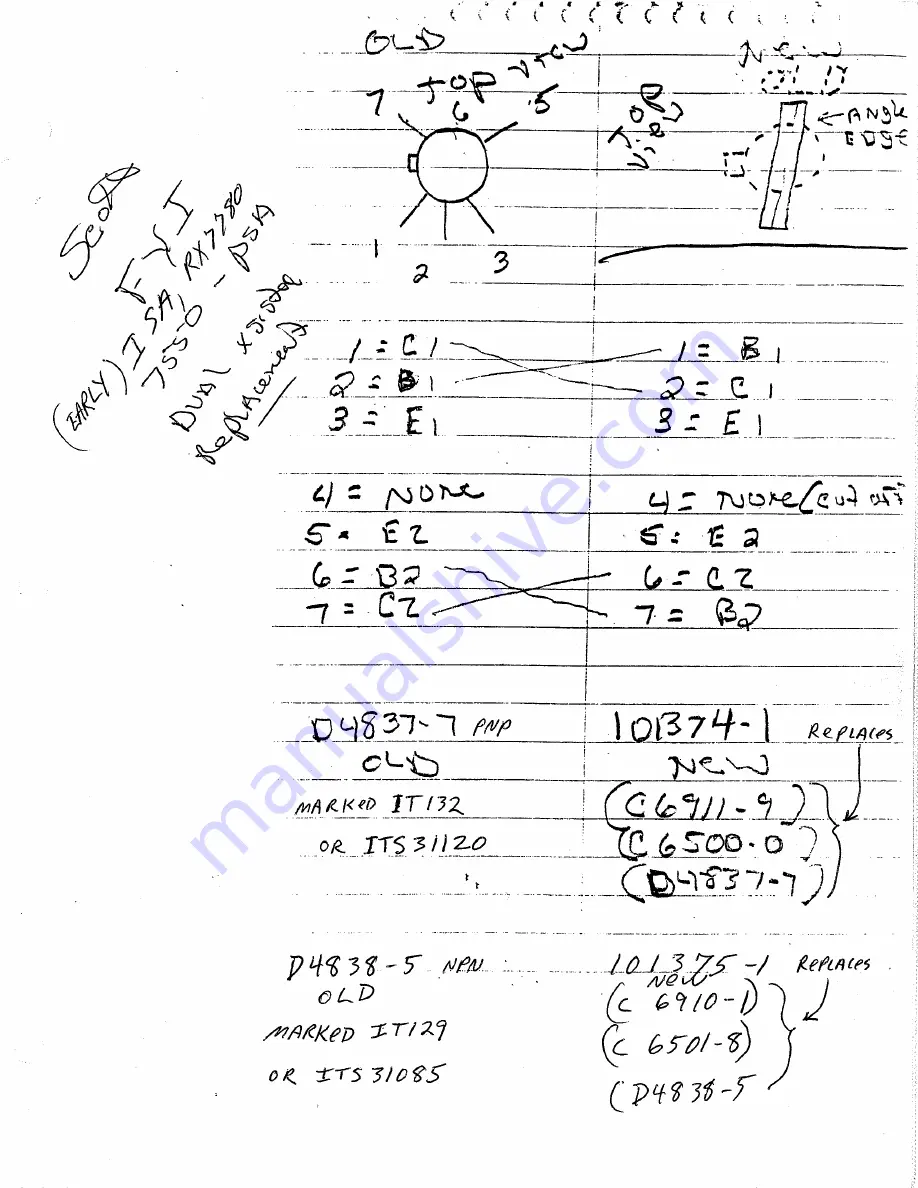 OLD
TOP VIEW
7 6 5
1 2 3
New
OLD
Top
View
←ANgle
EDgE
Scott
FYI
(EARLY) ISA, RX7780
7550 - PSA
DUAL xsistor
Replacement
1 = C1
2 = B1
3 = E1
4 = NONe
5 = E2
6 = B2
7 = C2
1 = B1
2 = C1
3 = E1
4 = NONe (cut off
5 = E2
6 = C2
7 = B2
D4837-7 PNP
OLD
MARKeD IT132
OR ITS31120
101374-1 RePLACes
New
(C6911-9)
(C6500-0)
(D4837-7)
D4838-5 NPN
OLD
MARKeD IT129
OR ITS31085
101375-1 RePLACes
New
(C 6910-1)
(C 6501-8)
(D4838-5
manualshive.com